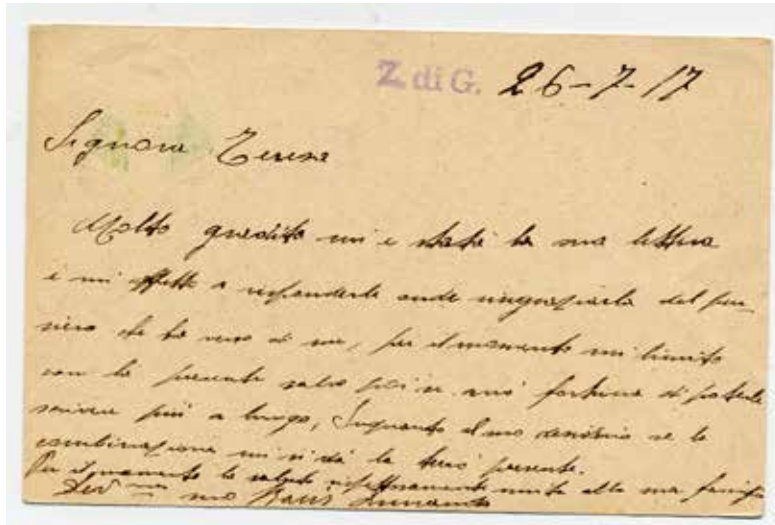 Z di G. 26-7-17
Signora Teresa
Molto gradita mi è stata la sua lettera
e mi affretto a risponderle onde ringraziarla del pen-
siero che ha verso di me, per il momento mi limito
con la presente salvo poi se avrò fortuna di poterle
scrivere più a lungo, Inquanto al suo desiderio se la
combinazione mi si dà la terrò presente.
Per il momento la saluto rispettosamente unita alla sua famiglia
Dev mo suo